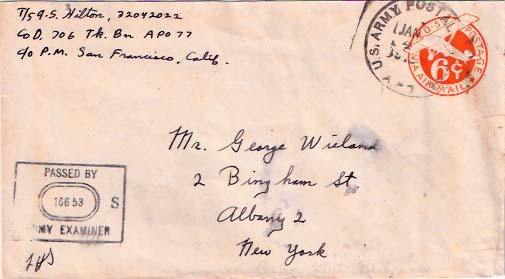 T/5 G.S. Hilton, 32042022
Co D. 706 Tk. Bn APO 77
c/o P.M. San Francisco, Calif.
U.S. ARMY POST
1 JAN
U.S. POSTAGE
6¢
VIA AIR MAIL
Mr. George Wieland
2 Bingham St.
Albany 2
New York
PASSED BY
16653 S
MY EXAMINER